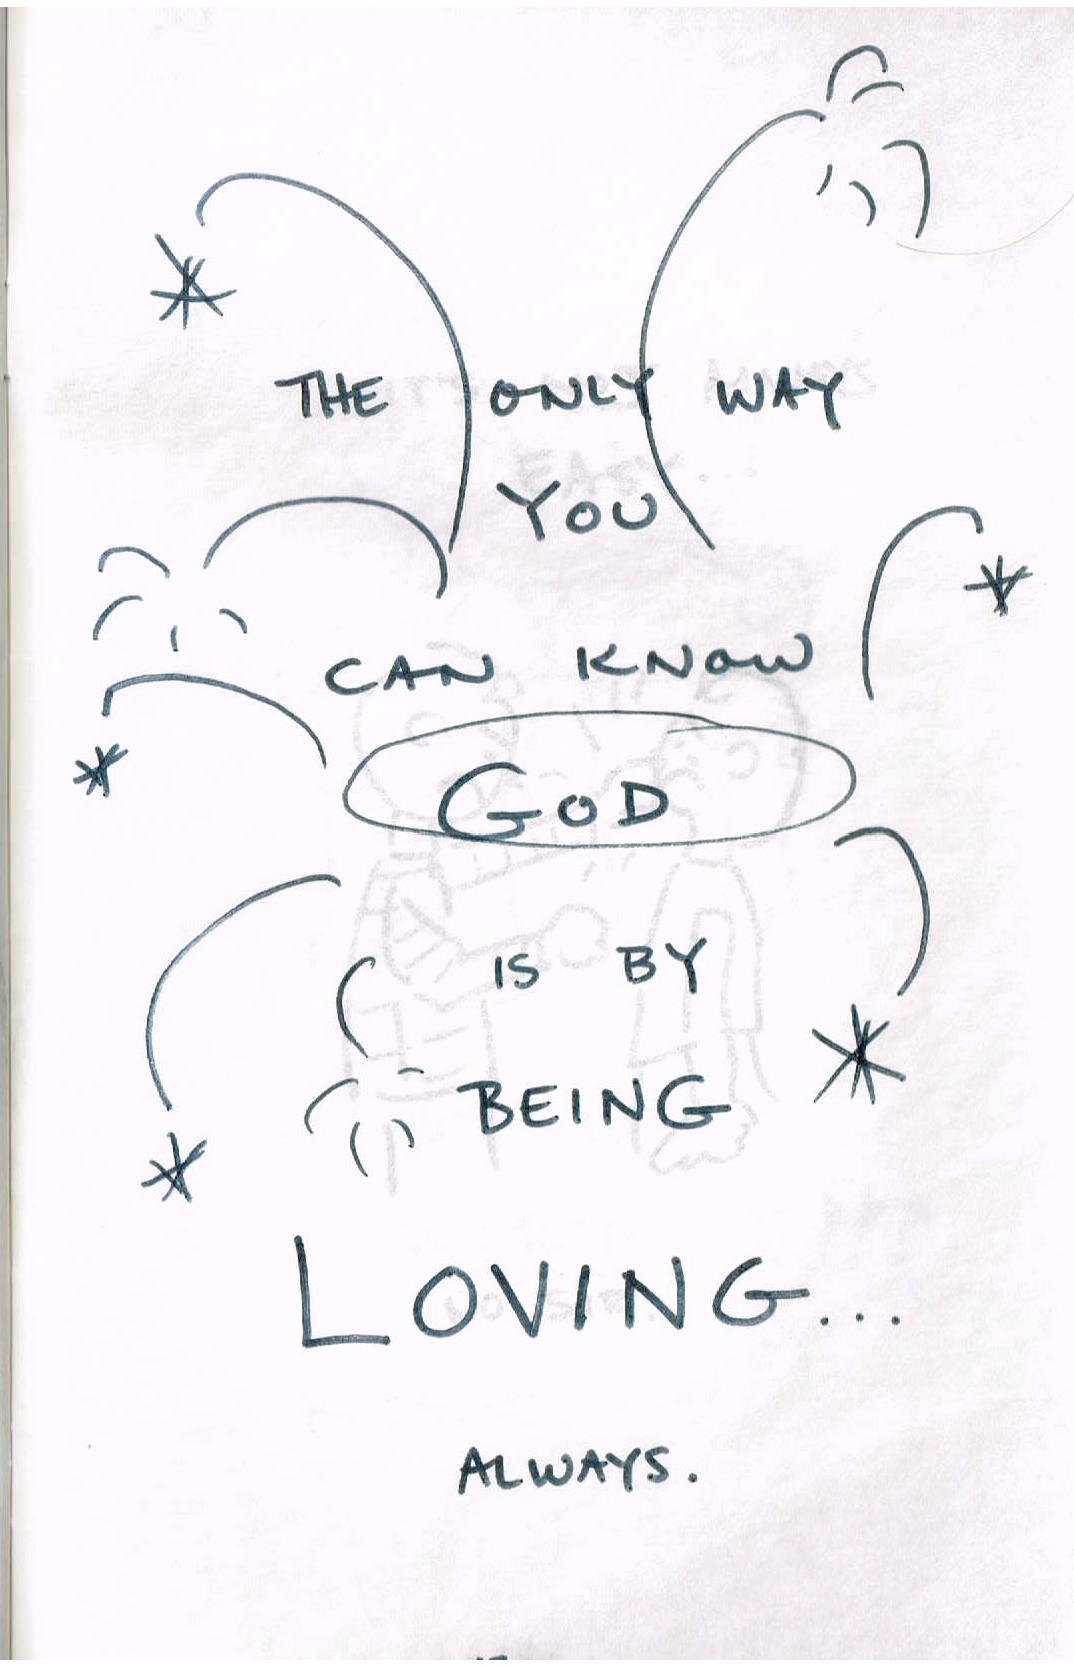 THE ONLY WAY
YOU
CAN KNOW
GOD
IS BY
BEING
LOVING...
ALWAYS.